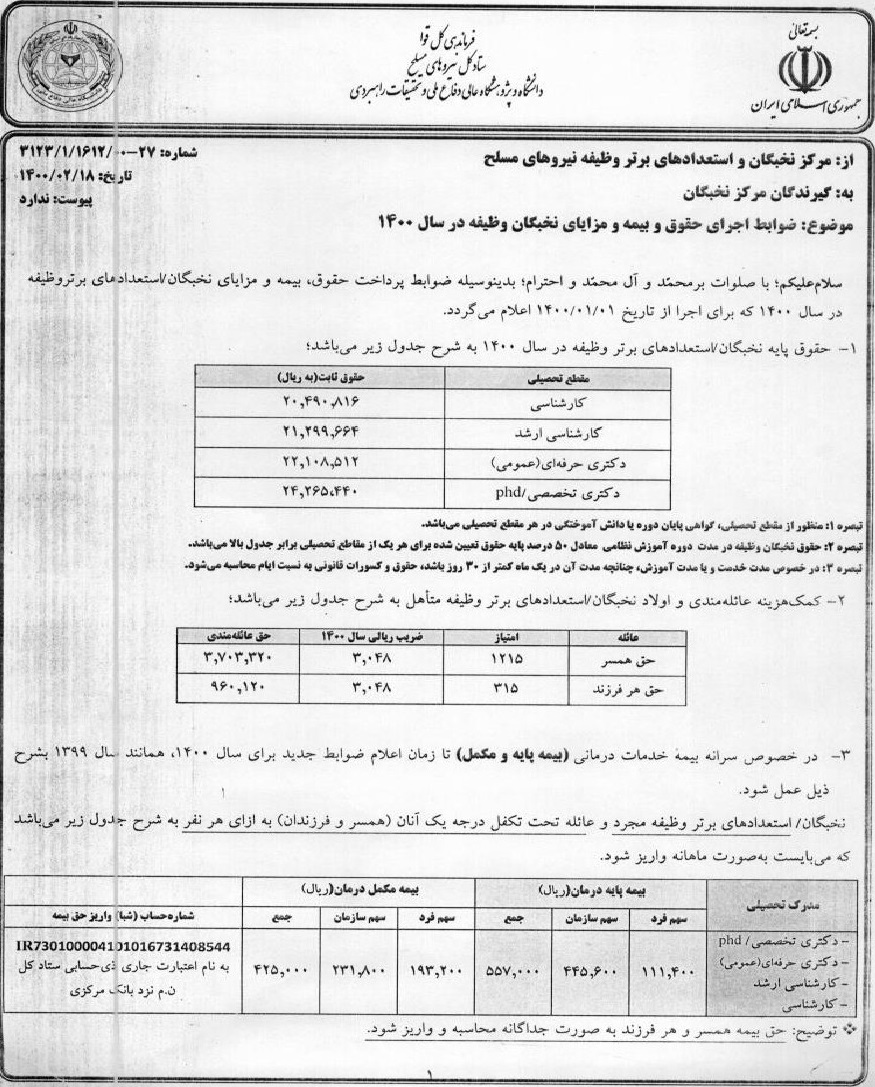 بسمه تعالی
جمهوری اسلامی ایران
فرماندهی کل قوا
ستاد کل نیروهای مسلح
دانشگاه و پژوهشگاه عالی دفاع ملی و تحقیقات راهبردی
شماره: ۲۷-۳۱۲۳/۱/۱۶۱۲/۰۰
تاریخ: ۱۴۰۰/۰۲/۱۸
پیوست: ندارد
از: مرکز نخبگان و استعدادهای برتر وظیفه نیروهای مسلح
به: گیرندگان مرکز نخبگان
موضوع: ضوابط اجرای حقوق و بیمه و مزایای نخبگان وظیفه در سال ۱۴۰۰
سلام‌علیکم؛ با صلوات برمحمّد و آل محمّد و احترام؛ بدینوسیله ضوابط پرداخت حقوق، بیمه و مزایای نخبگان/استعدادهای برتروظیفه
در سال ۱۴۰۰ که برای اجرا از تاریخ ۱۴۰۰/۰۱/۰۱ اعلام می‌گردد.
۱- حقوق پایه نخبگان/استعدادهای برتر وظیفه در سال ۱۴۰۰ به شرح جدول زیر می‌باشد؛
مقطع تحصیلی حقوق ثابت(به ریال)
کارشناسی ۲۰,۴۹۰,۸۱۶
کارشناسی ارشد ۲۱,۲۹۹,۶۶۴
دکتری حرفه‌ای(عمومی) ۲۲,۱۰۸,۵۱۲
دکتری تخصصی/phd ۲۴,۲۶۵,۴۴۰
تبصره ۱: منظور از مقطع تحصیلی، گواهی پایان دوره یا دانش آموختگی در هر مقطع تحصیلی می‌باشد.
تبصره ۲: حقوق نخبگان وظیفه در مدت دوره آموزش نظامی، معادل ۵۰ درصد پایه حقوق تعیین شده برای هر یک از مقاطع تحصیلی برابر جدول بالا می‌باشد.
تبصره ۳: در خصوص مدت خدمت و یا مدت آموزش، چنانچه مدت آن در یک ماه کمتر از ۳۰ روز باشد، حقوق و کسورات قانونی به نسبت ایام محاسبه می‌شود.
۲- کمک‌هزینه عائله‌مندی و اولاد نخبگان/استعدادهای برتر وظیفه متأهل به شرح جدول زیر می‌باشد؛
عائله امتیاز ضریب ریالی سال ۱۴۰۰ حق عائله‌مندی
حق همسر ۱۲۱۵ ۳,۰۴۸ ۳,۷۰۳,۳۲۰
حق هر فرزند ۳۱۵ ۳,۰۴۸ ۹۶۰,۱۲۰
۳- در خصوص سرانه بیمه خدمات درمانی (بیمه پایه و مکمل) تا زمان اعلام ضوابط جدید برای سال ۱۴۰۰، همانند سال ۱۳۹۹ بشرح
ذیل عمل شود.
نخبگان/ استعدادهای برتر وظیفه مجرد و عائله تحت تکفل درجه یک آنان (همسر و فرزندان) به ازای هر نفر به شرح جدول زیر می‌باشد
که می‌بایست به‌صورت ماهانه واریز شود.
مدرک تحصیلی بیمه پایه درمان(ریال) بیمه مکمل درمان(ریال) شماره‌حساب (شبا) واریز حق بیمه
سهم فرد سهم سازمان جمع سهم فرد سهم سازمان جمع
- دکتری تخصصی/ phd
- دکتری حرفه‌ای(عمومی)
- کارشناسی ارشد
- کارشناسی
۱۱۱,۴۰۰ ۴۴۵,۶۰۰ ۵۵۷,۰۰۰ ۱۹۳,۲۰۰ ۲۳۱,۸۰۰ ۴۲۵,۰۰۰
IR730100004101016731408544
به نام اعتبارت جاری ذی‌حسابی ستاد کل
ن.م نزد بانک مرکزی
❖ توضیح: حق بیمه همسر و هر فرزند به صورت جداگانه محاسبه و واریز شود.
۱